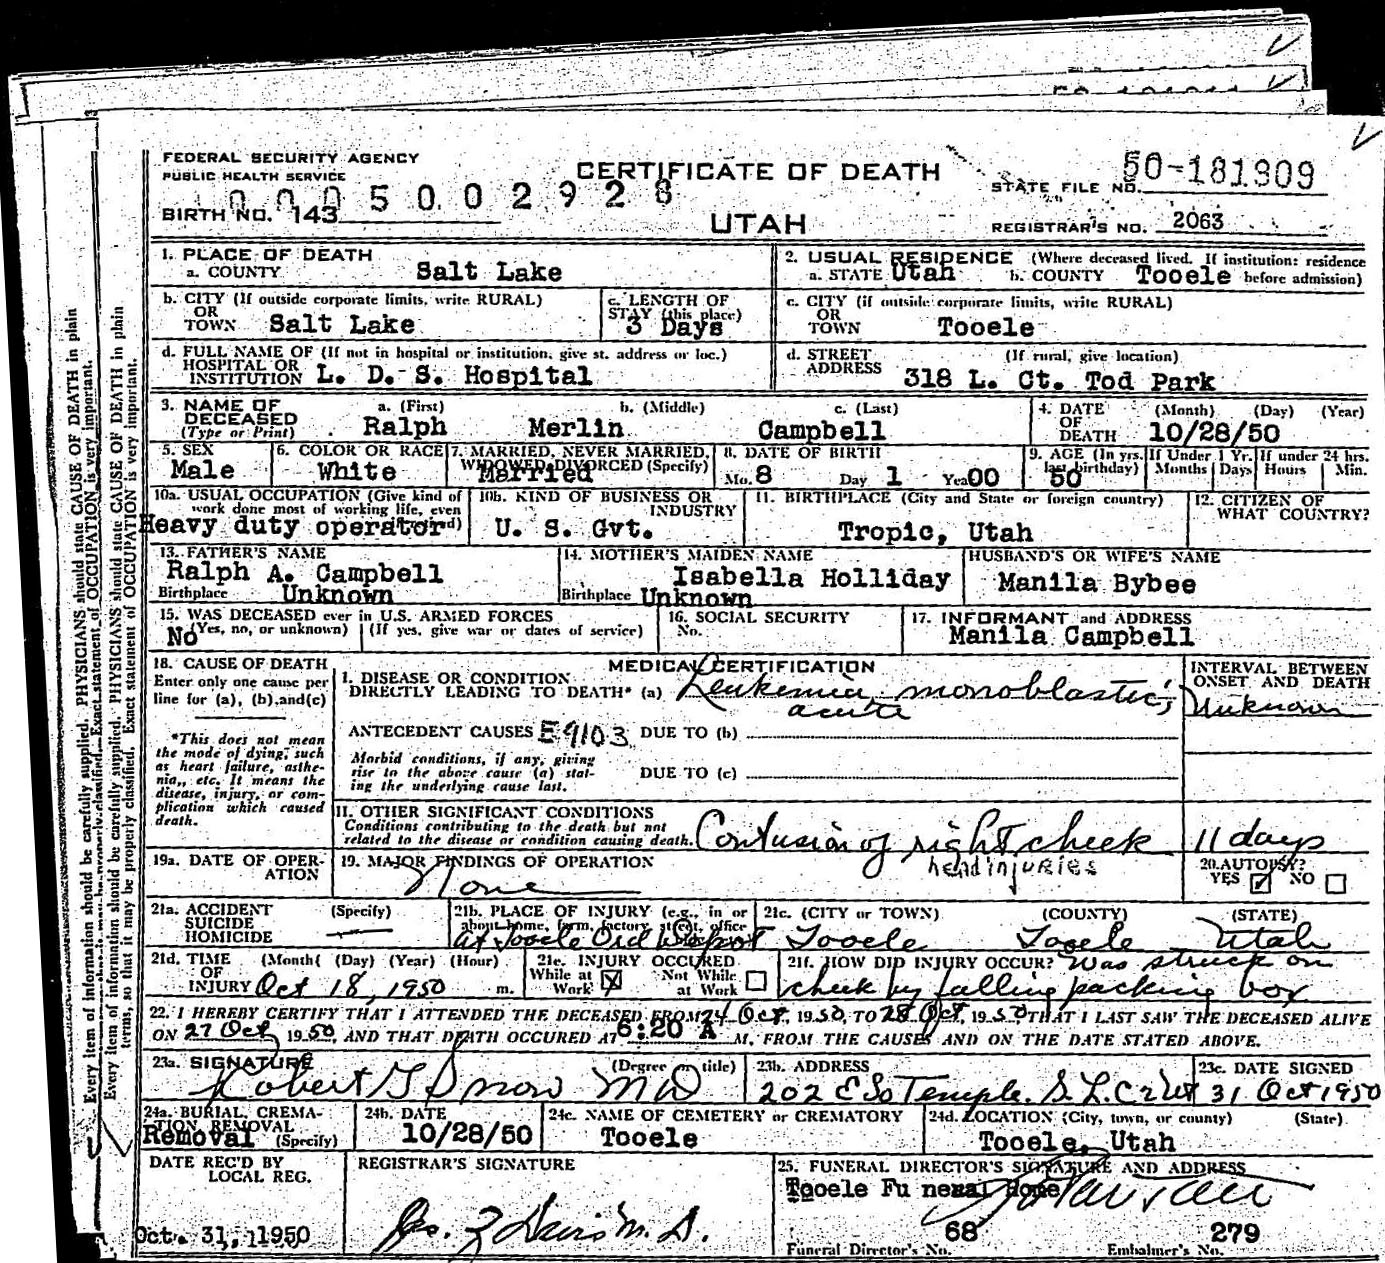 FEDERAL SECURITY AGENCY
PUBLIC HEALTH SERVICE
0005002928
BIRTH NO. 143
CERTIFICATE OF DEATH
UTAH
STATE FILE NO. 50-181309
REGISTRAR'S NO. 2063
1. PLACE OF DEATH
a. COUNTY Salt Lake
2. USUAL RESIDENCE (Where deceased lived. If institution: residence
a. STATE Utah b. COUNTY Tooele before admission)
b. CITY (If outside corporate limits, write RURAL)
OR
TOWN Salt Lake
c. LENGTH OF
STAY (this place)
3 Days
c. CITY (if outside corporate limits, write RURAL)
OR
TOWN Tooele
d. FULL NAME OF (If not in hospital or institution, give st. address or loc.)
HOSPITAL OR
INSTITUTION L. D. S. Hospital
d. STREET (If rural, give location)
ADDRESS 318 L. Ct. Tod Park
3. NAME OF DECEASED (Type or Print)
a. (First) b. (Middle) c. (Last)
Ralph Merlin Campbell
4. DATE OF DEATH (Month) (Day) (Year)
10/28/50
5. SEX
Male
6. COLOR OR RACE
White
7. MARRIED, NEVER MARRIED,
WIDOWED, DIVORCED (Specify)
Married
8. DATE OF BIRTH
Mo. 8 Day 1 Year 00
9. AGE (In yrs. last birthday)
50
If Under 1 Yr. Months Days
If under 24 hrs. Hours Min.
10a. USUAL OCCUPATION (Give kind of
work done most of working life, even
Heavy duty operator
10b. KIND OF BUSINESS OR
INDUSTRY
U. S. Gvt.
11. BIRTHPLACE (City and State or foreign country)
Tropic, Utah
12. CITIZEN OF
WHAT COUNTRY?
13. FATHER'S NAME
Ralph A. Campbell
Birthplace Unknown
14. MOTHER'S MAIDEN NAME
Isabella Holliday
Birthplace Unknown
HUSBAND'S OR WIFE'S NAME
Manila Bybee
15. WAS DECEASED ever in U.S. ARMED FORCES
No (Yes, no, or unknown) (If yes, give war or dates of service)
16. SOCIAL SECURITY
No.
17. INFORMANT and ADDRESS
Manila Campbell
18. CAUSE OF DEATH
Enter only one cause per
line for (a), (b), and (c)
*This does not mean
the mode of dying, such
as heart failure, asthe-
nia, etc. It means the
disease, injury, or com-
plication which caused
death.
MEDICAL CERTIFICATION
I. DISEASE OR CONDITION
DIRECTLY LEADING TO DEATH* (a) Leukemia, monoblastic,
acute
ANTECEDENT CAUSES E9103 DUE TO (b)
Morbid conditions, if any, giving
rise to the above cause (a) stat-
ing the underlying cause last.
DUE TO (c)
INTERVAL BETWEEN
ONSET AND DEATH
Unknown
II. OTHER SIGNIFICANT CONDITIONS
Conditions contributing to the death but not
related to the disease or condition causing death.
Contusion of right cheek
head injuries
11 days
19a. DATE OF OPER-
ATION
19. MAJOR FINDINGS OF OPERATION
None
20. AUTOPSY?
YES ☑ NO ☐
21a. ACCIDENT (Specify)
SUICIDE
HOMICIDE
21b. PLACE OF INJURY (e.g., in or
about home, farm, factory, street, office
at Tooele Ord Depot
21c. (CITY or TOWN) (COUNTY) (STATE)
Tooele Tooele Utah
21d. TIME (Month) (Day) (Year) (Hour)
OF
INJURY Oct 18, 1950 m.
21e. INJURY OCCURED
While at Work ☒ Not While at Work ☐
21f. HOW DID INJURY OCCUR? Was struck on
cheek by falling packing box
22. I HEREBY CERTIFY THAT I ATTENDED THE DECEASED FROM 24 Oct, 1950, TO 28 Oct, 1950 THAT I LAST SAW THE DECEASED ALIVE
ON 27 Oct, 1950, AND THAT DEATH OCCURED AT 6:20 A M. FROM THE CAUSES AND ON THE DATE STATED ABOVE.
23a. SIGNATURE (Degree or title)
Robert G Snow MD
23b. ADDRESS
202 E So Temple. S.L.C. 2 Ut
23c. DATE SIGNED
31 Oct 1950
24a. BURIAL, CREMA-
TION, REMOVAL
Removal (Specify)
24b. DATE
10/28/50
24c. NAME OF CEMETERY or CREMATORY
Tooele
24d. LOCATION (City, town, or county) (State)
Tooele, Utah
DATE REC'D BY
LOCAL REG.
Oct. 31, 1950
REGISTRAR'S SIGNATURE
25. FUNERAL DIRECTOR'S SIGNATURE AND ADDRESS
Tooele Funeral Home
68 279
Funeral Director's No. Embalmer's No.
Every item of information should be carefully supplied. PHYSICIANS should state CAUSE OF DEATH in plain
terms, so that it may be properly classified. Exact statement of OCCUPATION is very important.